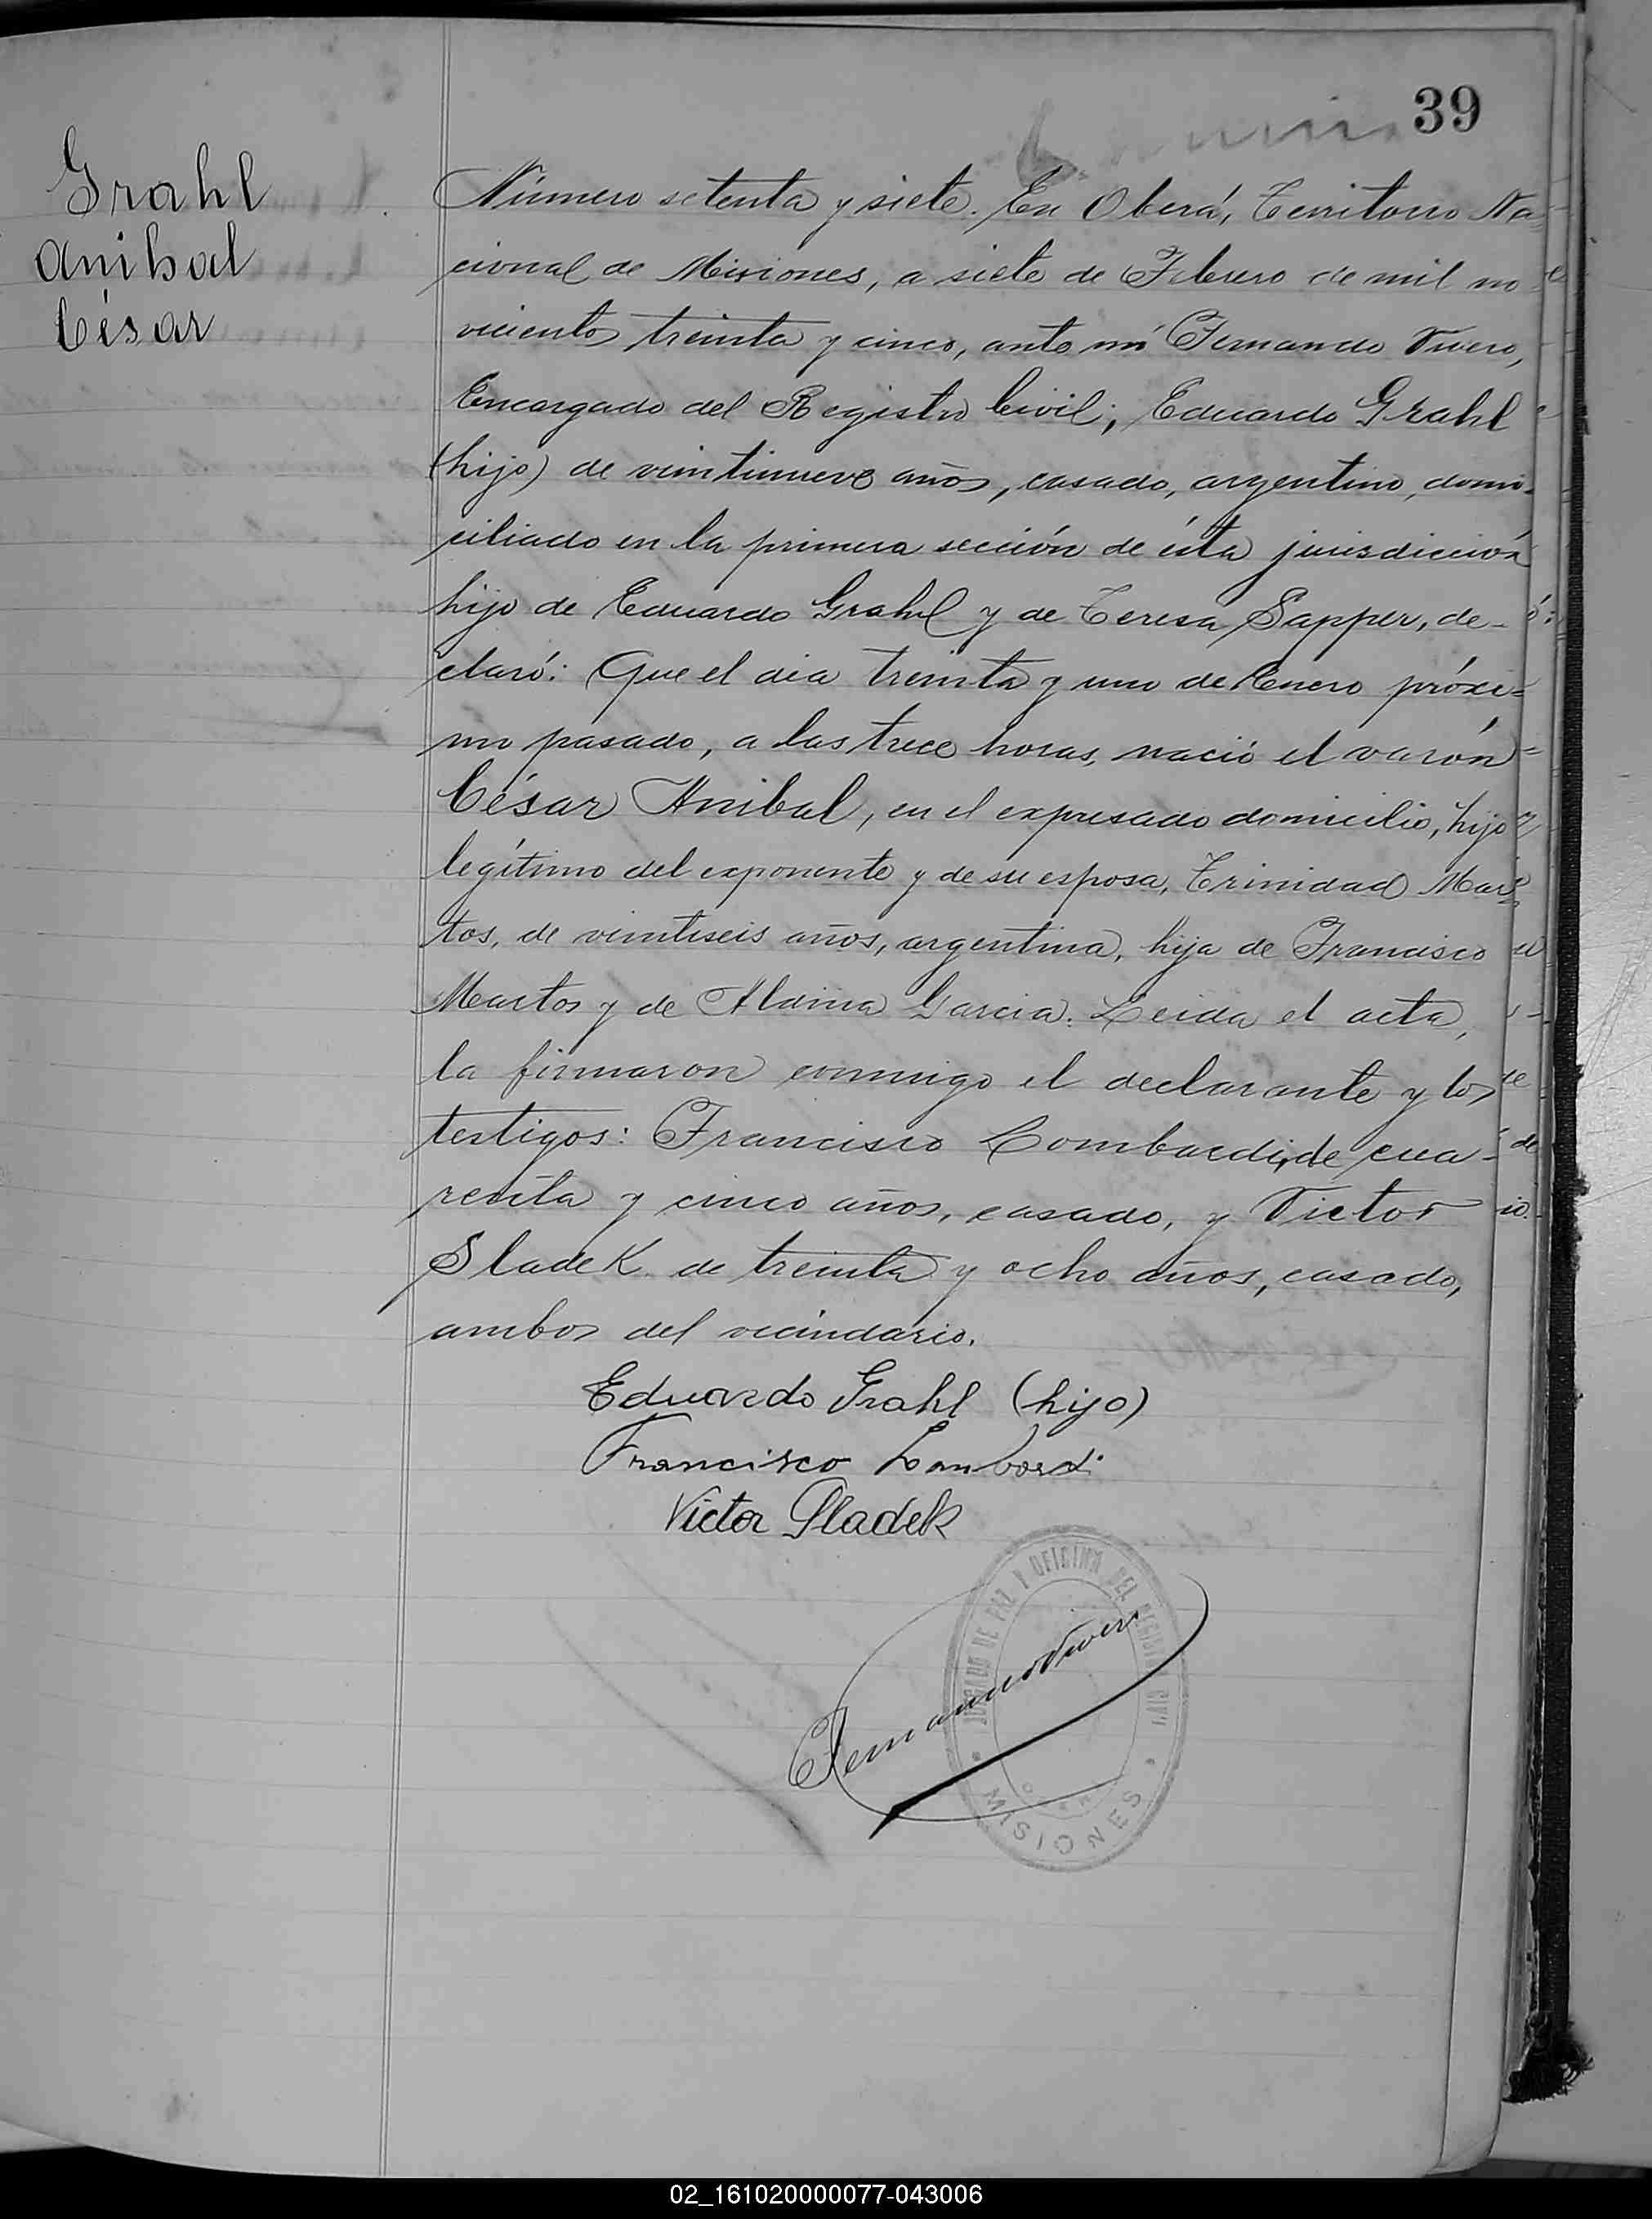 39
Grahl
Anibal
César
Número setenta y siete. En Oberá, Territorio Na=
cional de Misiones, a siete de Febrero de mil no
vecientos treinta y cinco, ante mí Fernando Vivero,
Encargado del Registro Civil; Eduardo Grahl
(hijo) de veintinueve años, casado, argentino, domi-
ciliado en la primera sección de ésta jurisdicción
hijo de Eduardo Grahl y de Teresa Sapper, de-
claró: Que el dia treinta y uno de Enero próxi=
mo pasado, a las trece horas, nació el varón
César Anibal, en el expresado domicilio, hijo
legítimo del exponente y de su esposa, Trinidad Mar=
tos, de veintiseis años, argentina, hija de Francisco
Martos y de Aldina Garcia. Leida el acta,
la firmaron conmigo el declarante y los
testigos: Francisco Lombardi, de cua-
renta y cinco años, casado, y Victor
Sladek de treinta y ocho años, casado,
ambos del vecindario.
Eduardo Grahl (hijo)
Francisco Lombardi
Victor Sladek
Fernando Vivero
JUZGADO DE PAZ Y OFICINA DEL REGISTRO CIVIL
MISIONES
02_161020000077-043006